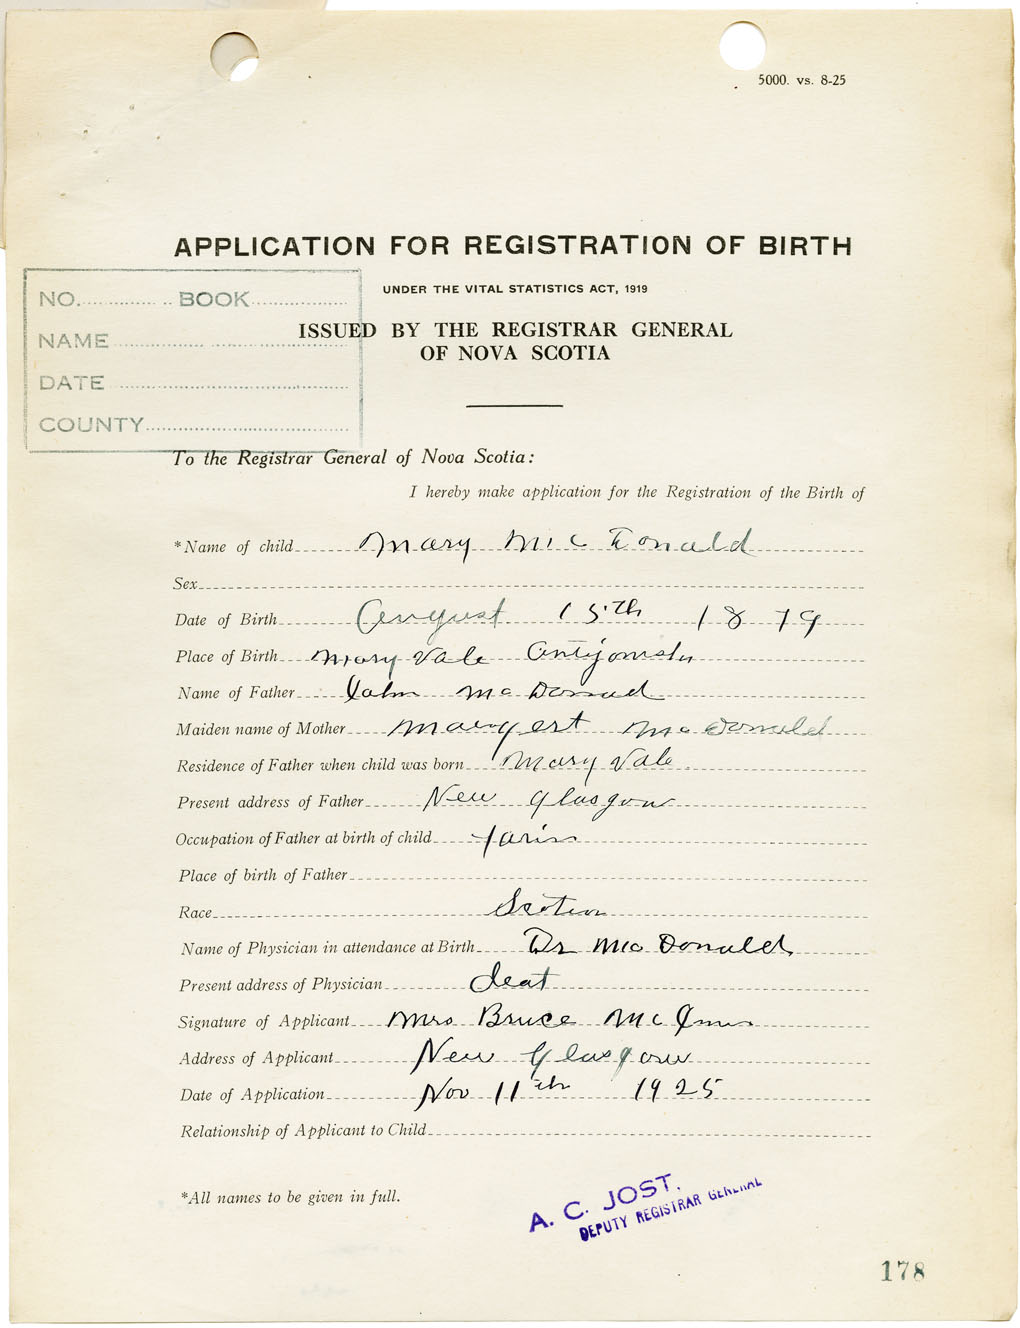 5000. vs. 8-25
APPLICATION FOR REGISTRATION OF BIRTH
UNDER THE VITAL STATISTICS ACT, 1919
ISSUED BY THE REGISTRAR GENERAL
OF NOVA SCOTIA
NO. BOOK
NAME
DATE
COUNTY
To the Registrar General of Nova Scotia:
I hereby make application for the Registration of the Birth of
*Name of child Mary McDonald
Sex
Date of Birth August 15th 1879
Place of Birth Mary Vale
Name of Father John McDonald
Maiden name of Mother Margert McDonald
Residence of Father when child was born Mary Vale
Present address of Father New Glasgow
Occupation of Father at birth of child farm
Place of birth of Father
Race
Name of Physician in attendance at Birth Dr McDonald
Present address of Physician deat
Signature of Applicant Mrs Bruce McInnis
Address of Applicant New Glasgow
Date of Application Nov 11th 1925
Relationship of Applicant to Child
*All names to be given in full.
A. C. JOST.
DEPUTY REGISTRAR GENERAL
178